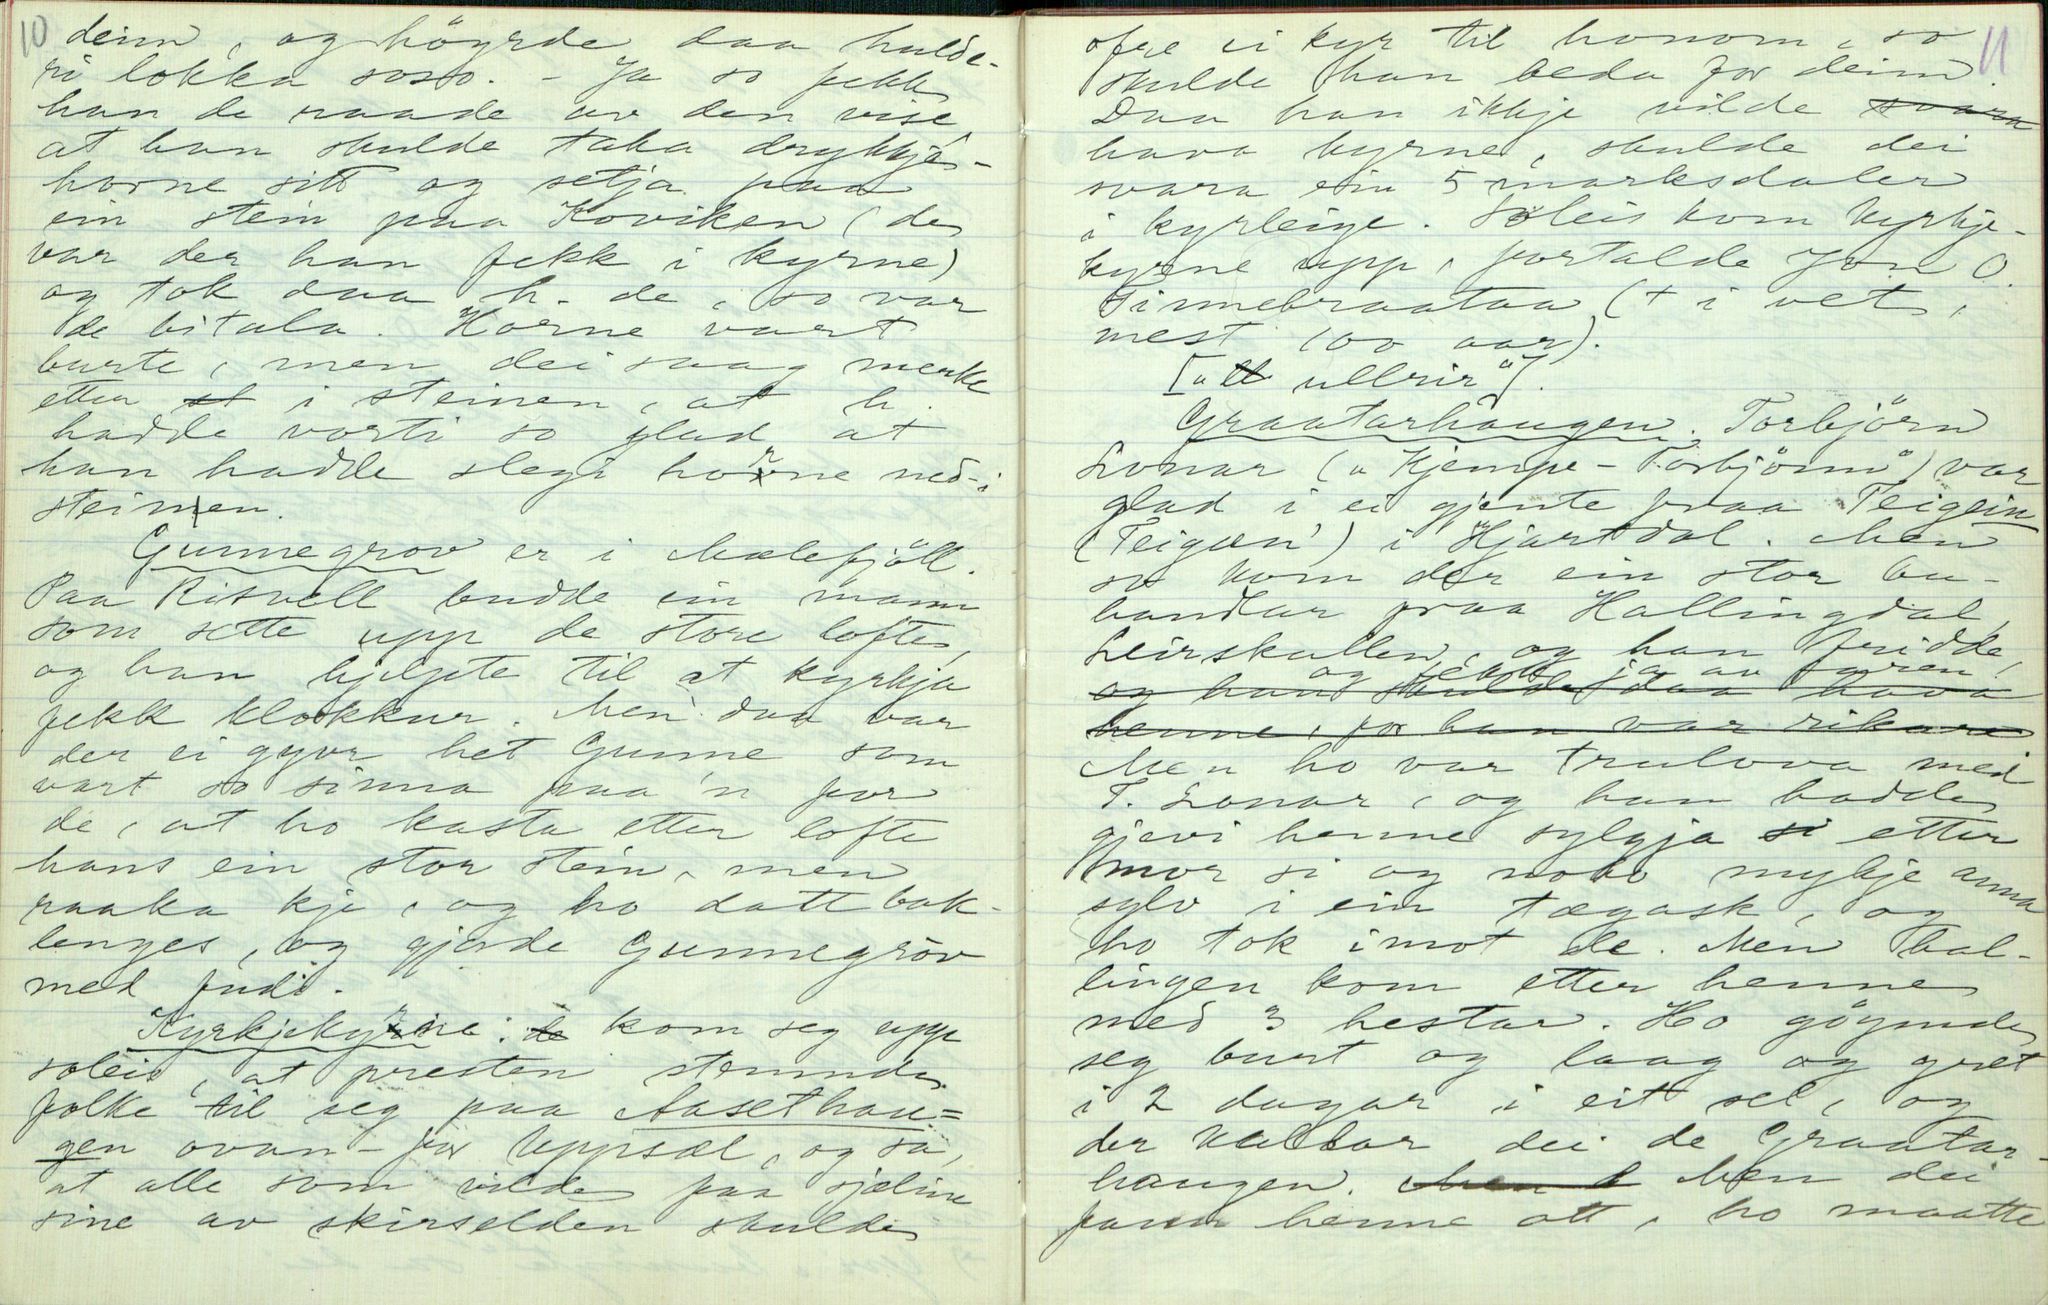 10
deim, og höyrde daa hulde-
ri lokka soso. - Ja so fekk
han de raade av den vise
at han skulde taka drykkje-
horne sitt og setja paa
ein stein paa Koviken (de
var der han fekk i kyrne)
og tok daa h. de, so var
de bitala. Horne vart
burte, men dei saag merke
etter st i steinen, at h.
hadde vorti so glad at
han hadde slegi horne ned-i
steinen.
Gunnegrov er i Mælefjöll.
Paa Risvoll budde ein mann
som sette upp de store lofte,
og han hjelpte til at kyrkja
fekk klokkur. Men daa var
der ei gyvr het Gunne som
vart so sinna paa'n for
de, at ho kasta etter lofte
hans ein stor stein, men
raaka kje, og ho datt bak-
lenges, og gjorde Gunnegrov
med fudi.
Kyrkjekyrne: de kom seg upp
soleis, at presten stemnde
folke til seg paa Aasethau=
gen ovan-for Uppsal, og sa,
at alle som vilde faa sjælinne
sine av skirselden skulde
11
ofre ei kyr til honom, so
skulde han beda for deim.
Daa han ikkje vilde svara
hava kyrne, skulde dei
svara ein 5 marksdaler
i kyrleige. Soleis kom kyrkje-
kyrne upp, fortalde Jon O.
Tinnebraataa (+ i vet,
mest 100 aar).
["tt ullrir"].
Graatarhaugen. Torbjörn
Lonar ("Kjempe-Torbjönn") var
glad i ei gjente fraa Teigein
(Teigæn') i Hjartdal. Men
so kom der ein stor bu-
bandlar fraa Hallingdal,
Leirskallen, og han fridde,
og fekk ja av foren,
og han skulde daa hava
henne, for han var rikare
Men ho var trulova med
T. Lonar, og han hadde
gjevi henne sylgja si etter
mor si og noko mykje anna
sylv i ein tægask, og
ho tok imot de. Men hal-
lingen kom etter henne
med 3 hestar. Ho göymde
seg burt og laag og gret
i 2 dagar i eit sel, og
der kallar dei de Graatar-
haugen. Men Men dei
fann henne att, ho maatte